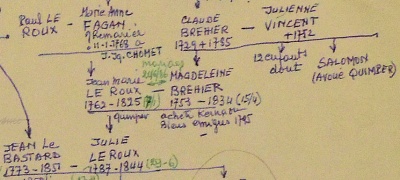 Paul LE ROUX - Marie Anne FAGAN
remariée
11-1-1768 a
J. Jq. CHOMET
CLAUDE BREHIER
1729 + 1785
JULIENNE VINCENT
+ 1782
12 enfants dont
SALOMON
(AVOUÉ QUIMPER)
Jean Marie LE ROUX
1762 - 1825
MAGDELEINE BREHIER
1753 - 1834 (15/4)
quimper
achète
biens émigrés 1795
JEAN Le BASTARD
1773 - 1851
JULIE LE ROUX
1787 - 1844 (29-6)